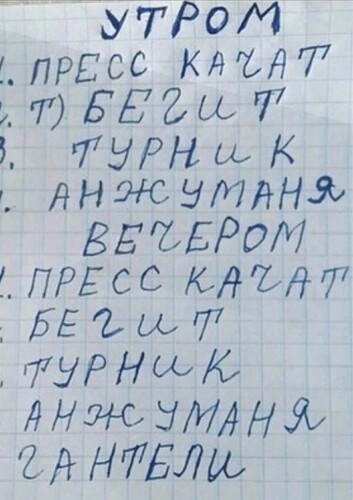 УТРОМ
1. ПРЕСС КАЧАТ
2. Т) БЕГИТ
3. ТУРНИК
4. АНЖУМАНЯ
ВЕЧЕРОМ
1. ПРЕСС КАЧАТ
БЕГИТ
ТУРНИК
АНЖУМАНЯ
ГАНТЕЛИ